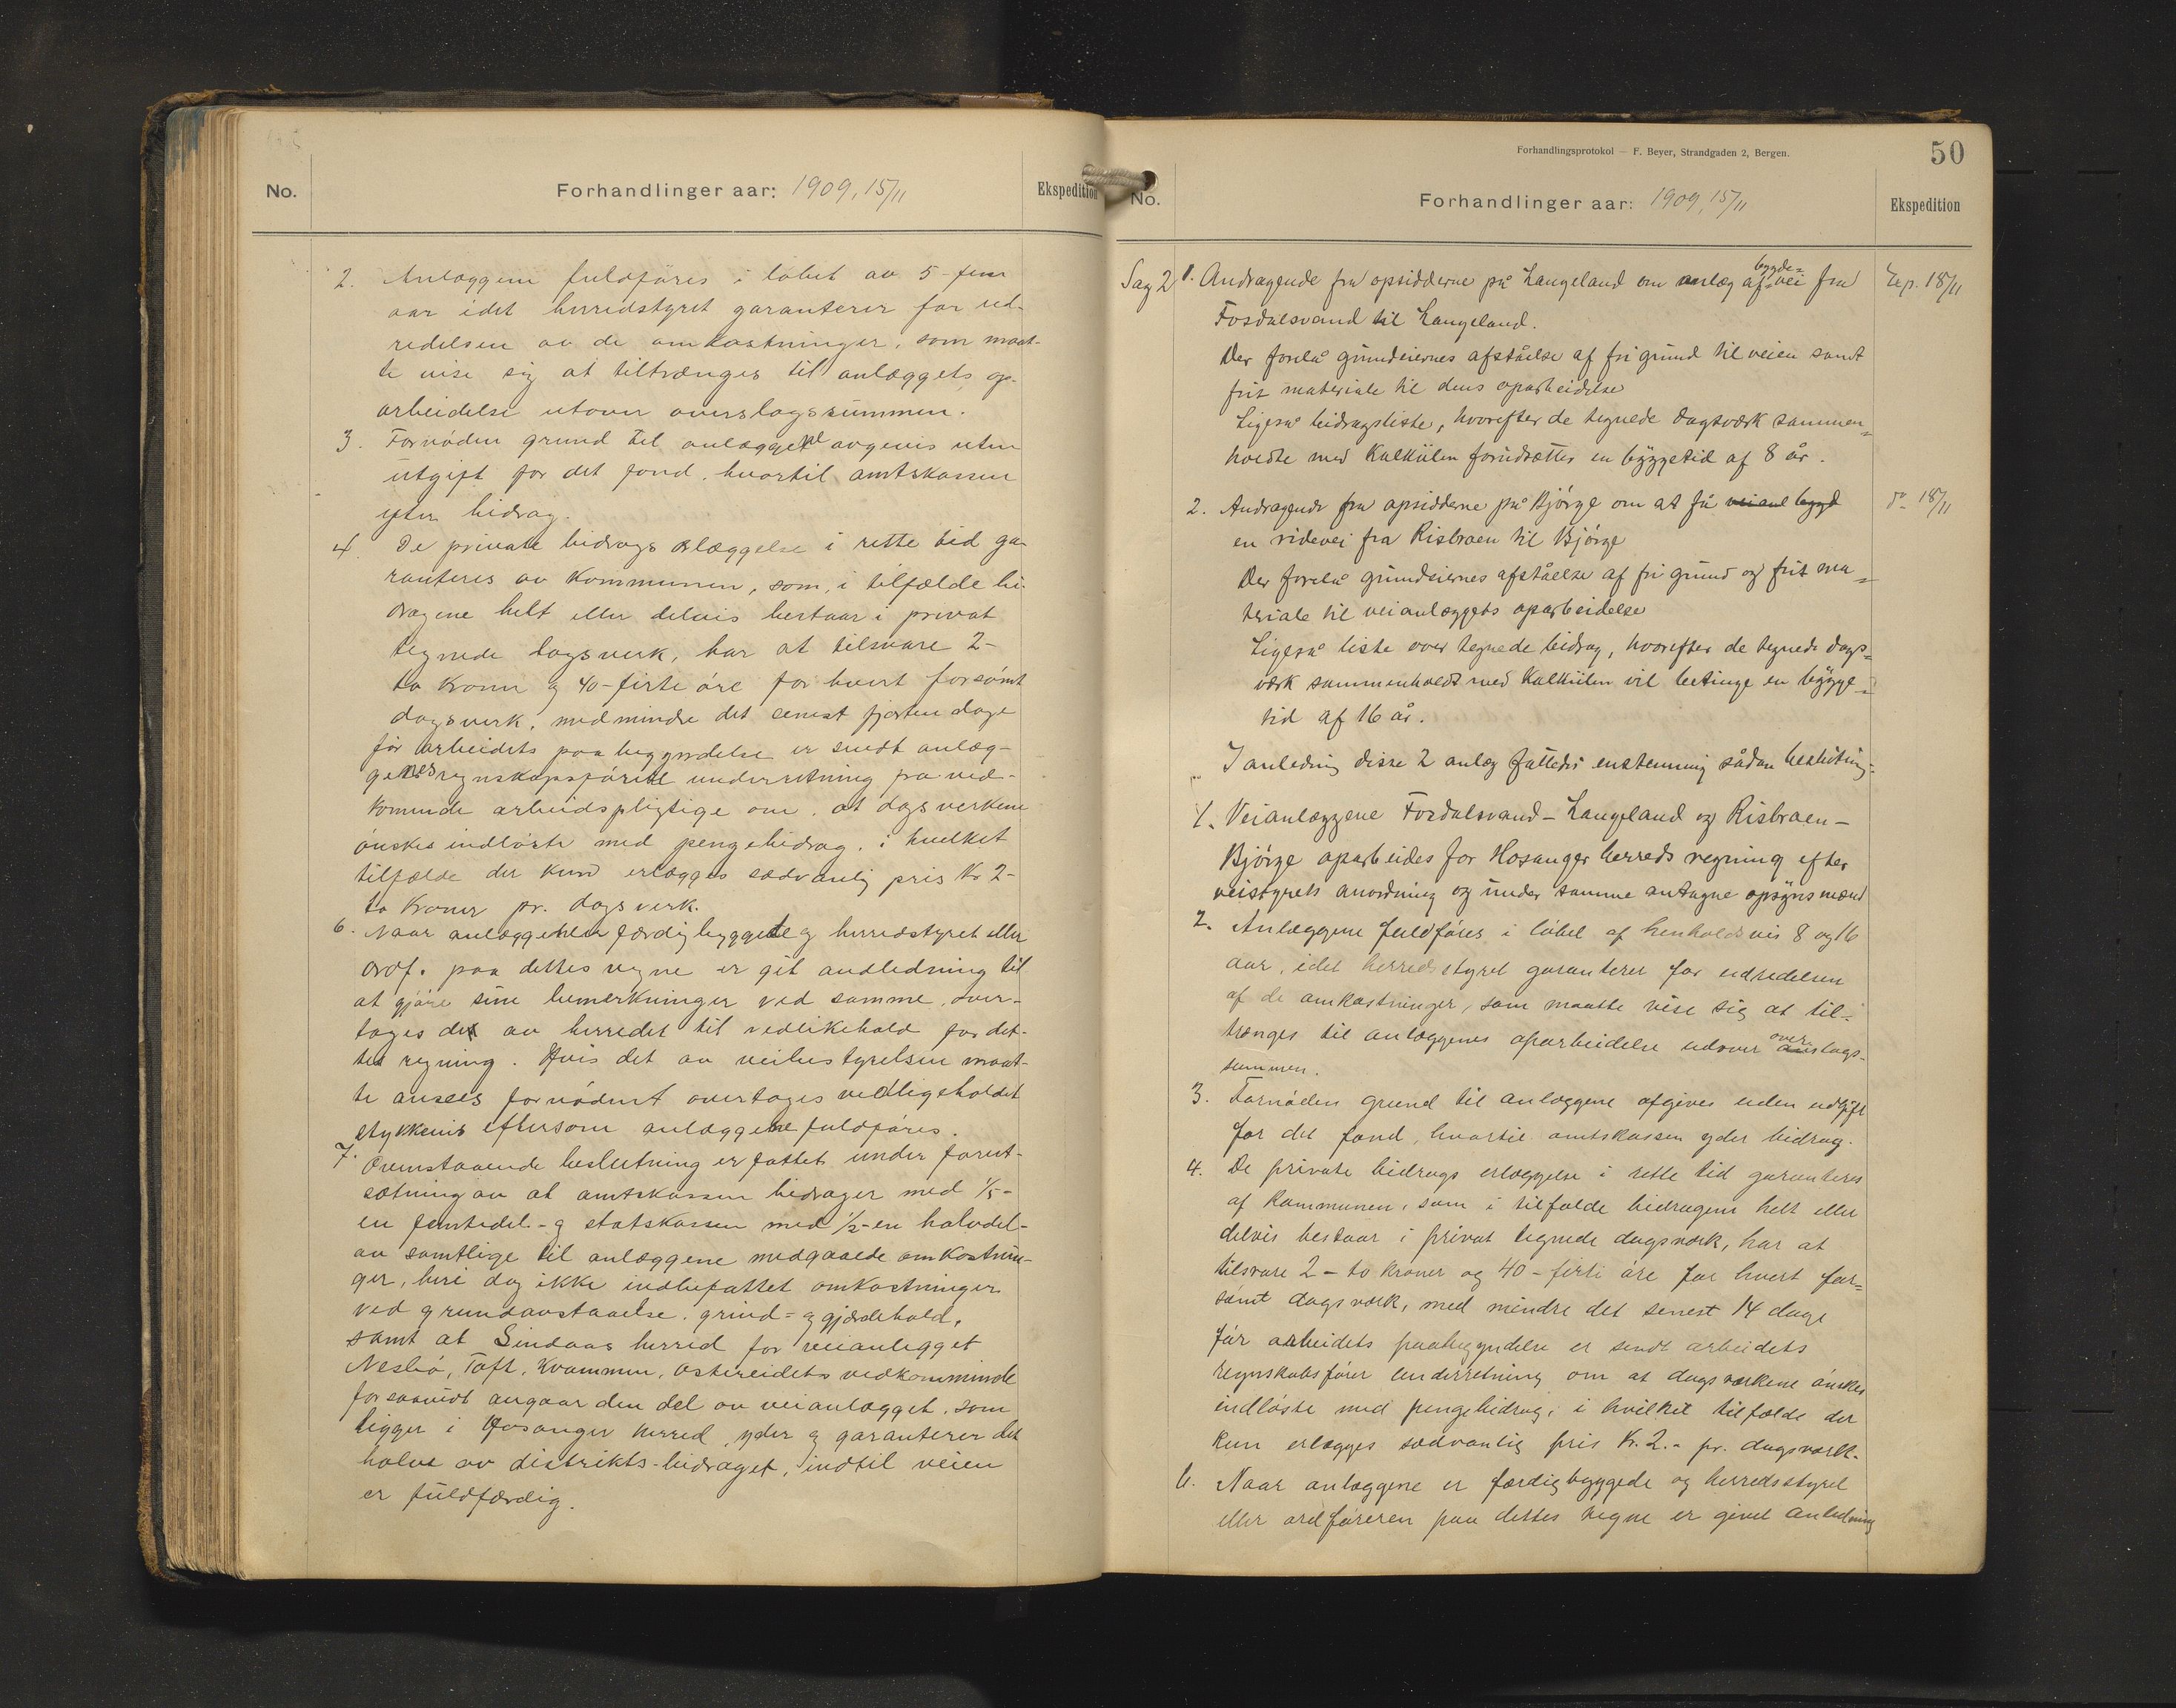 No.
Forhandlinger aar: 1909, 15/11
Ekspedition
2. Anlæggene fuldføres i løbet av 5-fem
aar idet herredstyret garanterer for ud-
redelsen av de omkostninger, som maat-
te vise sig at tiltrænges til anlæggets op-
arbeidelse utover overslagssummen.
3. Fornøden grund til anlæggene avgives uten
utgift for det fond, hvortil amtskassen
yter bidrag.
4. De private bidrags erlæggelse i rette tid ga-
ranteres av kommunen, som, i tilfælde bi-
dragene helt eller delvis bestaar i privat
tegnede dagsverk, har at tilsvare 2-
to kroner og 40-firti øre for hvert forsømt
dagsverk, medmindre det senest fjorten dage
før arbeidets paabegyndelse er sendt anlæg-
genes regnskapsfører underretning fra ved-
kommende arbeidspligtige om, at dagsverkene
ønskes indløste med pengebidrag, i hvilket
tilfælde der kun erlægges sædvanlig pris Kr 2-
to kroner pr. dagsverk.
6. Naar anlæggene er færdigbyggede og herredstyret eller
ordf. paa dettes vegne er git andledning til
at gjøre sine bemerkninger ved samme, over-
tages de av herredet til vedlikehold for det-
tes regning. Hvis det av veibestyrelsen maat-
te ansees fornødent overtages vedligeholdet
stykkevis eftersom anlæggene fuldføres.
7. Ovenstaaende beslutning er fattet under forut-
sætning av at amtskassen bidrager med 1/5-
en femtedel - og statskassen med 1/2-en halvdel-
av samtlige til anlæggene medgaaede omkostnin-
ger, heri dog ikke indbefattet omkostninger
ved grundavstaaelse, grind- og gjærdehold,
samt at Lindaas herred for veianlegget
Nesbø, Toft, Kvammen, Ostereidets vedkommende
forsaavidt angaar den del av veianlægget, som
ligger i Hosanger herred, yder og garanterer det
halve av distrikts-bidraget, indtil veien
er fuldfærdig.
Forhandlingsprotokol – F. Beyer, Strandgaden 2, Bergen.
50
No.
Forhandlinger aar: 1909, 15/11
Ekspedition
Sag 2 1. Andragende fra opsidderne på Langeland om anlæg af bygde-vei fra Exp. 18/11
Fosdalsvand til Langeland.
Der forelå grundeiernes afståelse af fri grund til veien samt
frit materiale til dens oparbeidelse
Ligeså bidragsliste, hvorefter de tegnede dagsværk sammen-
holdte med kalkülen forudsætter en byggetid af 8 år.
2. Andragende fra opsidderne på Bjørge om at få veianl bygd do 18/11
en ridevei fra Risbraen til Bjørge
Der forelå grundeiernes afståelse af fri grund og frit ma-
teriale til veianlæggets oparbeidelse
Ligeså liste over tegnede bidrag, hvorefter de tegnede dags-
værk sammenholdt med kalkülen vil betinge en bygge-
tid af 16 år.
I anledning disse 2 anlæg fattedes enstemmig sådan beslutning:
1. Veianlæggene Fosdalsvand – Langeland og Risbraen –
Bjørge oparbeides for Hosanger herreds regning efter
veistyrets anordning og under samme antagne opsynsmænd
2. Anlæggene fuldføres i løbet af henholdsvis 8 og 16
aar, idet herredsstyret garanterer for udredelsen
af de omkostninger, som maatte vise sig at til-
trænges til anlæggenes oparbeidelse udover overslags-
summen.
3. Fornøden grund til anlæggene afgives uden udgift
for det fond, hvortil amtskassen yder bidrag.
4. De private bidrags erlæggelse i rette tid garanteres
af kommunen, som i tilfælde bidragene helt eller
delvis bestaar i privat tegnede dagsværk, har at
tilsvare 2 – to kroner og 40 – firti øre for hvert for-
sømt dagsværk, med mindre det senest 14 dage
før arbeidets paabegyndelse er sendt arbeidets
regnskabsfører underretning om at dagsværkene ønskes
indløste med pengebidrag, i hvilket tilfælde der
kun erlægges sædvanlig pris Kr. 2.- pr. dagsværk.
6. Naar anlæggene er færdigbyggede og herredsstyret
eller ordføreren paa dettes vegne er givet anledning